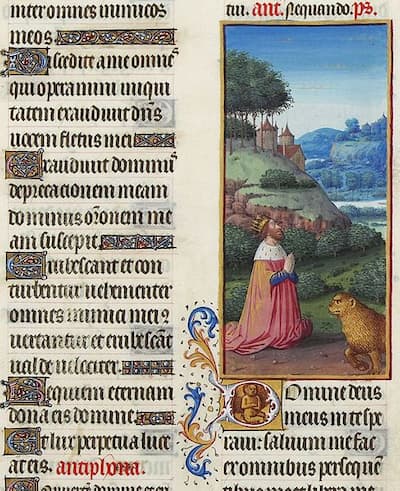 inter omnes inimicos
meos
Discedite a me omnẽs
qui operamini iniqui
tatem exaudiuit dñs
uocem fletus mei
Exaudiuit dominus
deprecacionem meam
dominus orõnem me
am suscepit
Erubescant et con
turbentur uehementer
omnes inimici mei ꝯ
uertantur et erubescãt
ualde uelociter
Requiem eternam
dona eis domine
Et lux perpetua luce
at eis. antiphona.
tui. ant. Nequando. ps.
Domine deus
meus in te spe
raui: saluum me fac
ex omnibus persequẽ
tibus me et libera me